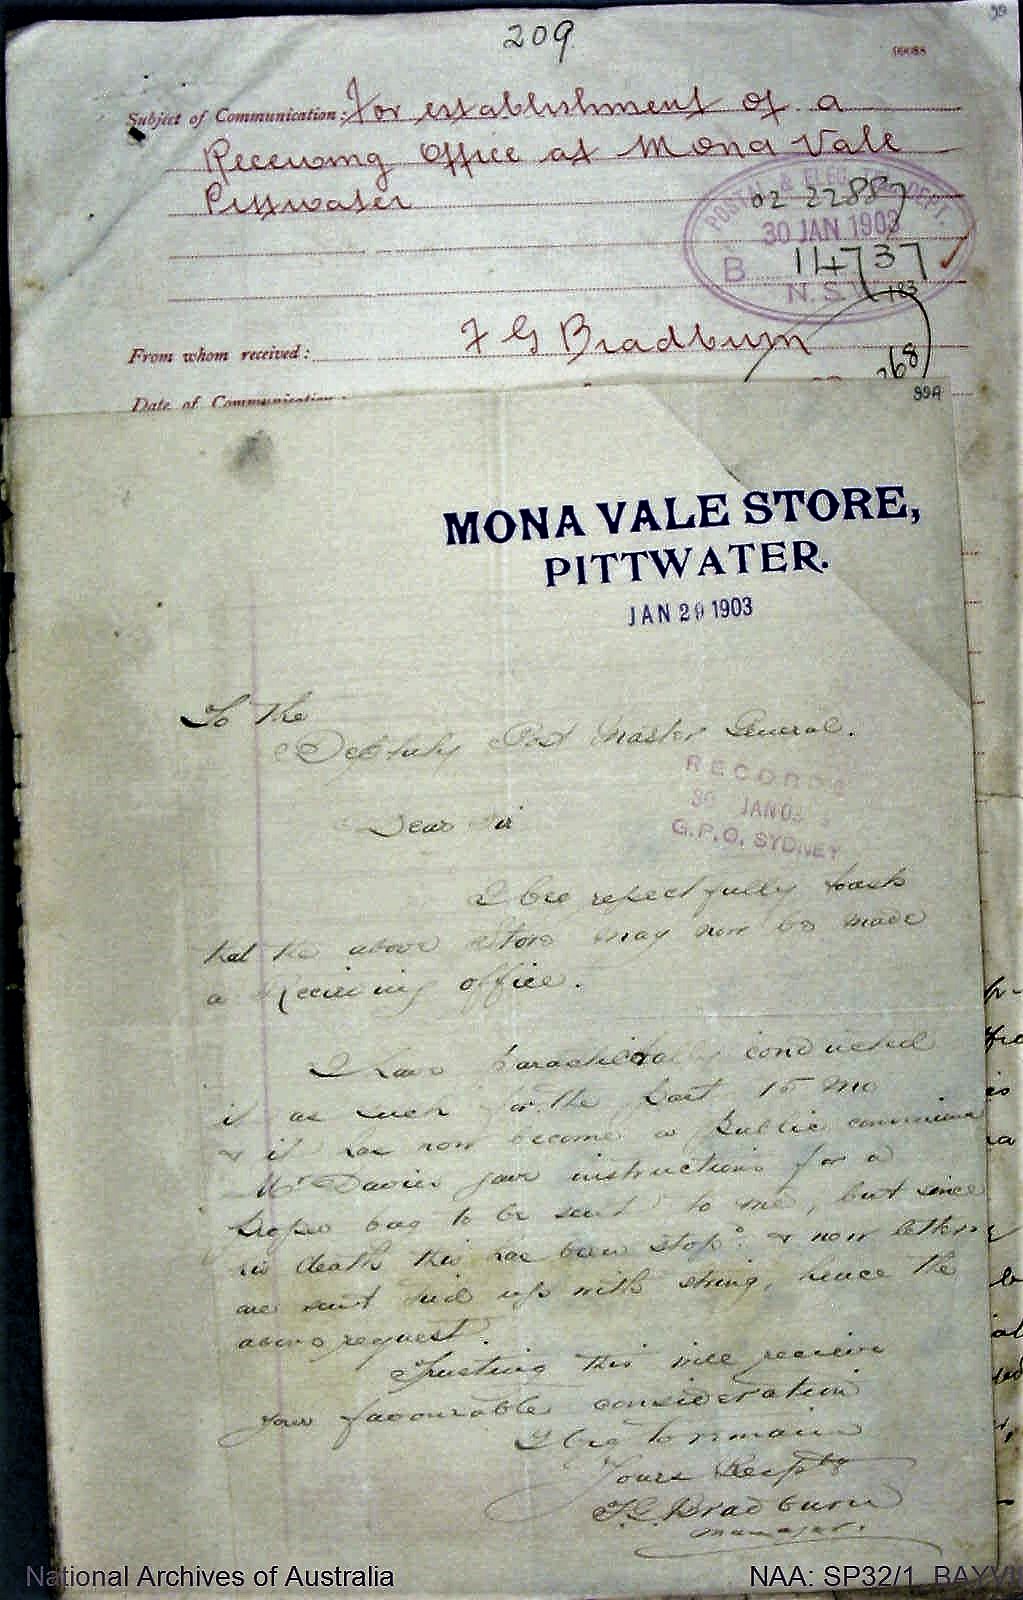 99
209
16088
Subject of Communication: For establishment of a
Receiving Office at Mona Vale
Pittwater
POSTAL & ELEC. DEPT.
02 22887
30 JAN 1903
B 14737
N.S.W.
183
From whom received: F G Bradburn
268
Date of Communication:
99A
MONA VALE STORE,
PITTWATER.
JAN 29 1903
To the
Deputy Post Master General.
RECORDS
30 JAN 03
G.P.O. SYDNEY
Dear Sir
I beg respectfully to ask
that the above Store may now be made
a Receiving office.
I have practically conducted
it as such for the past 15 mo
& it has now become a public convenience
Mr Davies gave instructions for a
proper bag to be sent to me, but since
his death this has been stopd & now letters
are sent tied up with string, hence the
above request.
Trusting this will receive
your favourable consideration
I beg to remain
Yours Respty
F.G. Bradburn
manager.
National Archives of Australia
NAA: SP32/1, BAYVI